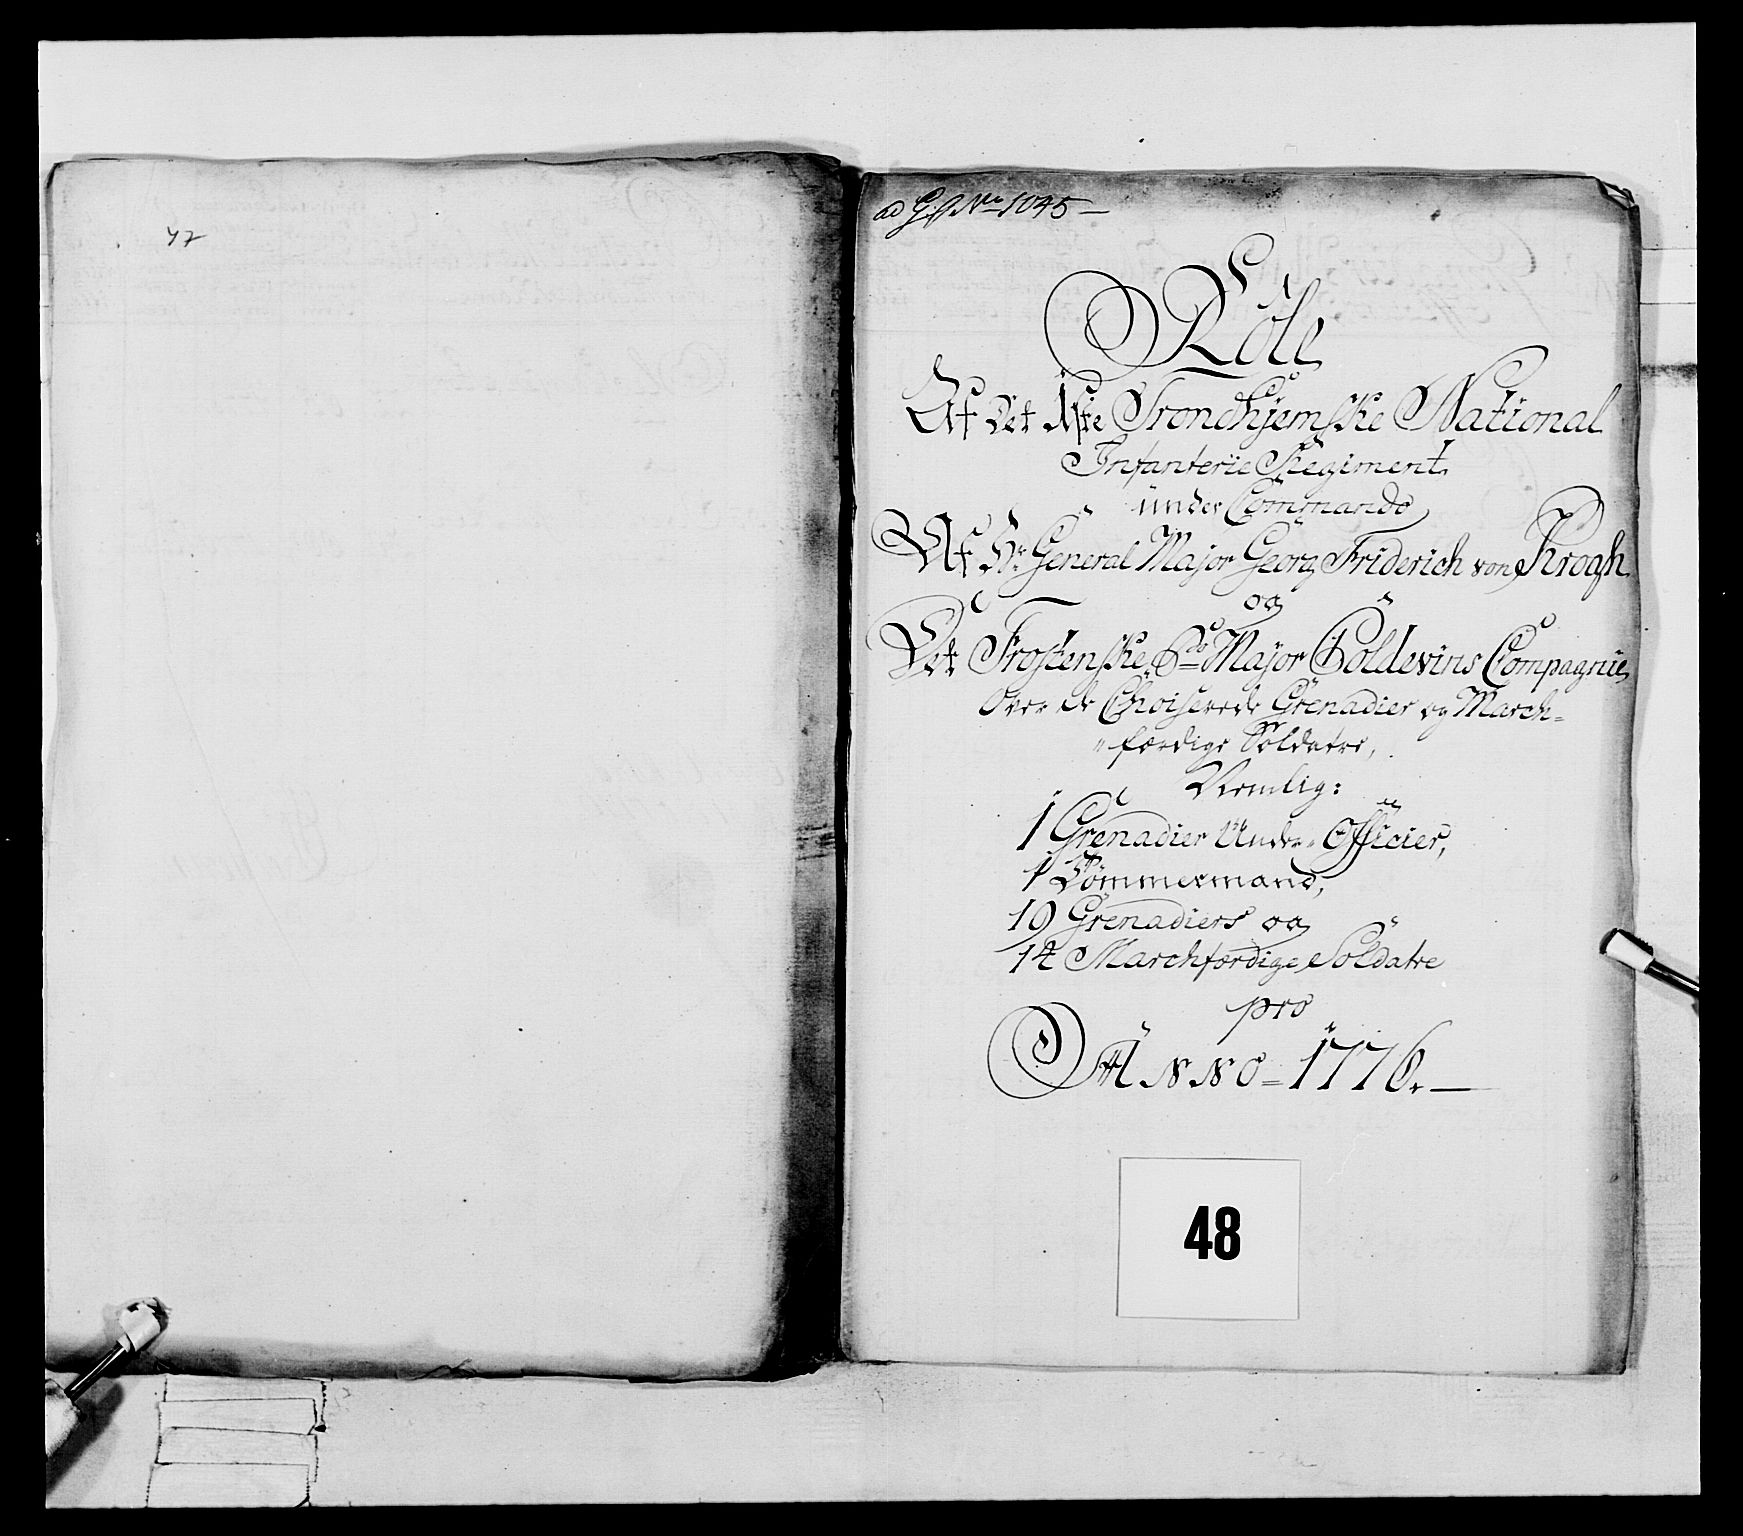 47
ad G: No 1045
Rolle
Af Det 1ste Trondhjemske National
Infanterie Regiment
under Commando
Af Hr. General Major Georg Friderich von Krogh
og
Det Frostenske Major Coldevins Compagnie
Over de Choiserede Grenadier og March-
færdige Soldatre,
Nemlig:
1 Grenadier Under-Officier,
1 Tömmermand,
19 Grenadiers og
14 Marchfærdige Soldatre
pro
ANNO = 1776.
48